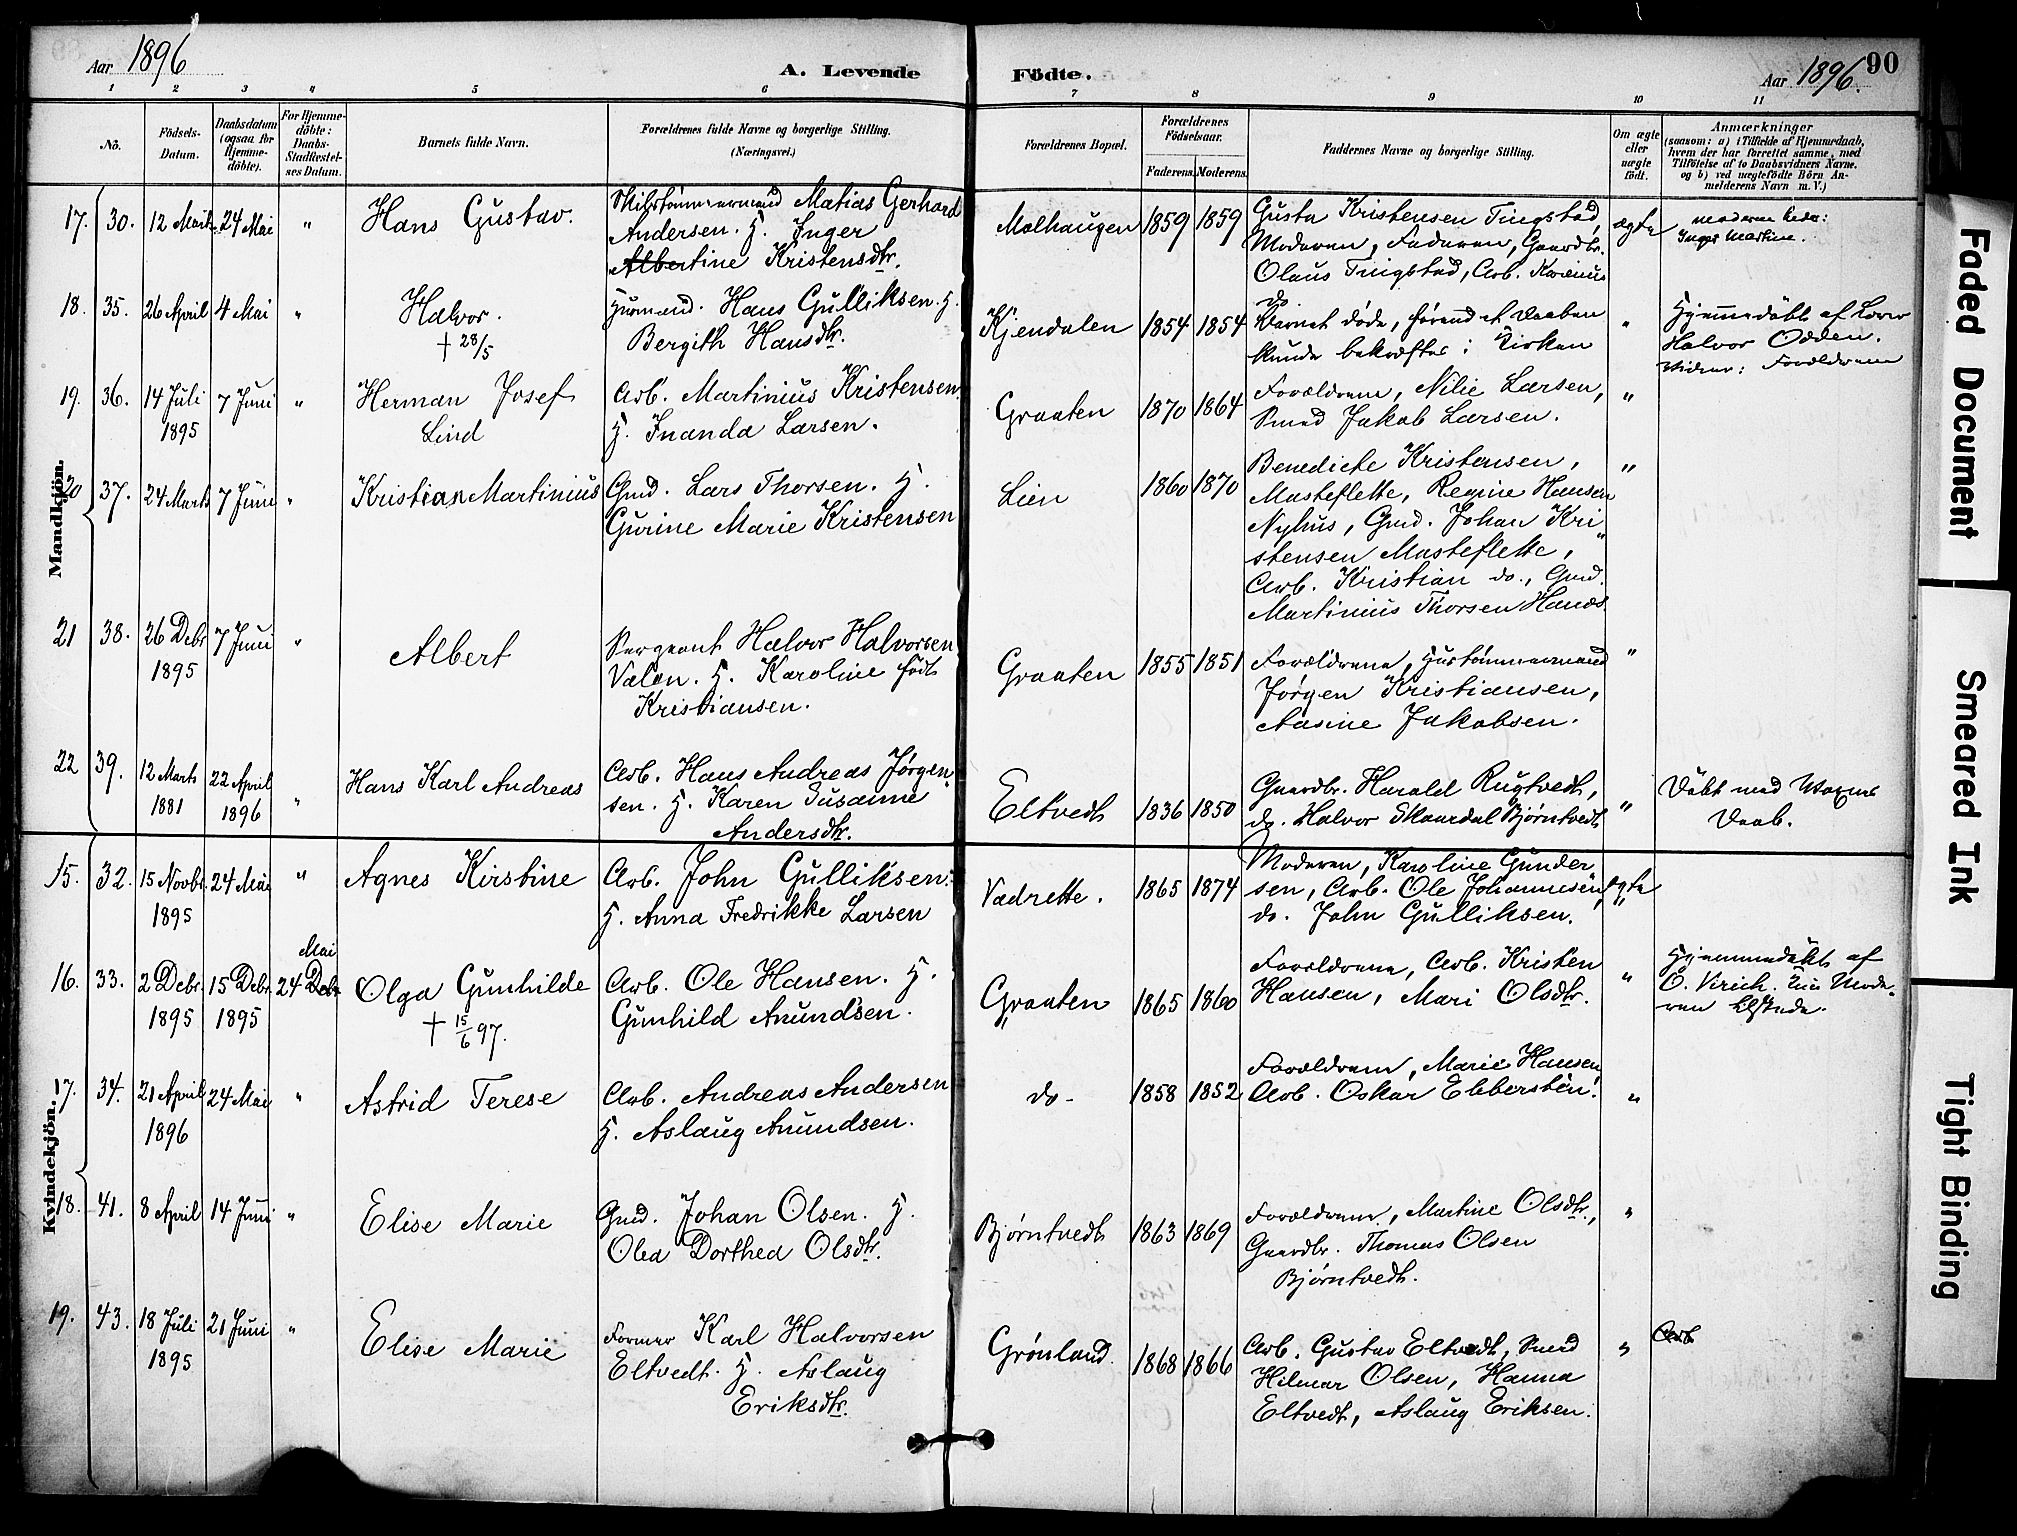 Aar 1896
A. Levende
Födte.
Aar 1896.
90
1 2 3 4 5 6 7 8 9 10 11
No.
Födsels-
Datum.
Daabsdatum
(ogsaa for
Hjemme-
döbte).
For Hjemme-
döbte:
Daabs-
Stadfæstel-
ses Datum.
Barnets fulde Navn.
Forældrenes fulde Navne og borgerlige Stilling.
(Næringsvei.)
Forældrenes Bopæl.
Forældrenes
Födselsaar.
Faderens. Moderens.
Faddernes Navne og borgerlige Stilling.
Om ægte
eller
uægte
födt.
Anmærkninger
(saasom: a) i Tilfælde af Hjemmedaab,
hvem der har forrettet samme, med
Tilföielse af to Daabsvidners Navne.
og b) ved uægtefödte Börn An-
melderens Navn m. V.)
Mandkjön.
17. 30. 12 Marts 24 Mai " Hans Gustav.
Skibstømmermand Matias Gerhard
Andersen. H. Inger
Albertine Kristensdtr.
Molhaugen 1859 1859
Gusta Kristensen Tingstad,
Moderen, Faderen, Gaardbr.
Olaus Tingstad, Arb. Karinius
do.
ægte
moderen heder:
Inger Martine.
18. 35. 26 April 4 Mai " Halvor.
† 28/5
Husmand. Hans Gulliksen. H.
Bergith Hansdtr.
Kjendalen 1854 1854
Barnet døde, førend et Daaben
kunde bekræftes i Kirken
"
Hjemmedøbt af Lærer
Halvor Odden.
Vidner: Forældrene
19. 36. 14 Juli 7 Juni "
1895
Herman Josef
Lind
Arb. Martinius Kristensen
H. Inanda Larsen.
Graaten 1870 1864
Forældrene, Nilie Larsen,
Smed Jakob Larsen.
"
20 37. 24 Marts 7 Juni " Kristian Martinius
Gmd. Lars Thorsen. H.
Gurine Marie Kristensen
Lien 1860 1870
Benedicte Kristensen,
Masteflette, Regine Hansen
Nyhus, Gmd. Johan Kri
stensen Masteflette,
Arb. Kristian do., Gmd.
Martinius Thorsen Hanes
"
21 38. 26 Debr 7 Juni "
1895
Albert
Sergeant Halvor Halvorsen
Valen. H. Karoline født
Kristiansen.
Graaten 1855 1851
Forældrene, Hustømmermand
Jørgen Kristiansen,
Aasine Jakobsen.
"
22 39. 12 Marts 22 April
1881 1896 "
Hans Karl Andreas
Arb. Hans Andreas Jørgen-
sen. H. Karen Susanne
Andersdtr.
Eltvedt 1836 1850
Gaardbr. Harald Rugtvedt,
do. Halvor Skaardal Bjørntvedt
"
Døbt med Voxnes
Daab.
Kvindekjön.
15. 32. 15 Novbr 24 Mai "
1895
Agnes Kirstine
Arb. John Gulliksen.
H. Anna Fredrikke Larsen
Vadrette. 1865 1874
Moderen, Karoline Gunder-
sen, Arb. Ole Johannesen,
do. John Gulliksen.
ægte
16. 33. 2 Debr. 15 Debr. 24 Debr Mai
1895 1895
Olga Gunhilde
† 15/6 97.
Arb. Ole Hansen. H.
Gunhild Anundsen.
Graaten 1865 1860
Forældrene, Arb. Kristen
Hansen, Mari Olsdtr.
"
Hjemmedøbt af
O. Virich. Kun Mode-
ren tilstede.
17. 34. 21 April 24 Mai "
1896
Astrid Terese
Arb. Andreas Andersen
H. Aslaug Anundsen.
do- 1858 1852
Forældrene, Marie Hansen,
Arb. Oskar Ebbersten.
"
18. 41. 8 April 14 Juni " Elise Marie
Gmd. Johan Olsen. H.
Olea Dorthea Olsdtr.
Bjørntvedt 1863 1869
Forældrene, Martine Olsdtr.,
Gaardbr. Thomas Olsen
Bjørntvedt.
"
19. 43. 18 Juli 21 Juni "
1895
Elise Marie
Former Karl Halvorsen
Eltvedt. H. Aslaug
Eriksdtr.
Grønland. 1868 1866
Arb. Gustav Eltvedt, Smed
Hilmar Olsen, Hanna
Eltvedt, Aslaug Eriksen.
"
Arb
Faded Document
Smeared Ink
Tight Binding